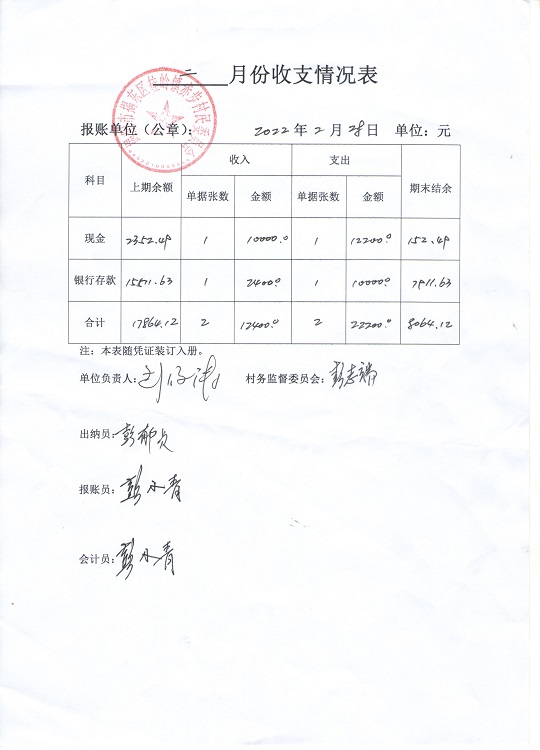 二 月份收支情况表
报账单位（公章）： 2022 年 2 月 28 日 单位：元
科目 上期余额 收入 支出 期末结余
单据张数 金额 单据张数 金额
现金 2352.49 1 10000.0 1 12200.0 152.49
银行存款 15511.63 1 2400.0 1 10000.0 7911.63
合计 17864.12 2 12400.0 2 22200.0 8064.12
注：本表随凭证装订入册。
单位负责人： 村务监督委员会：彭志端
出纳员：彭
报账员：彭小青
会计员：彭小青